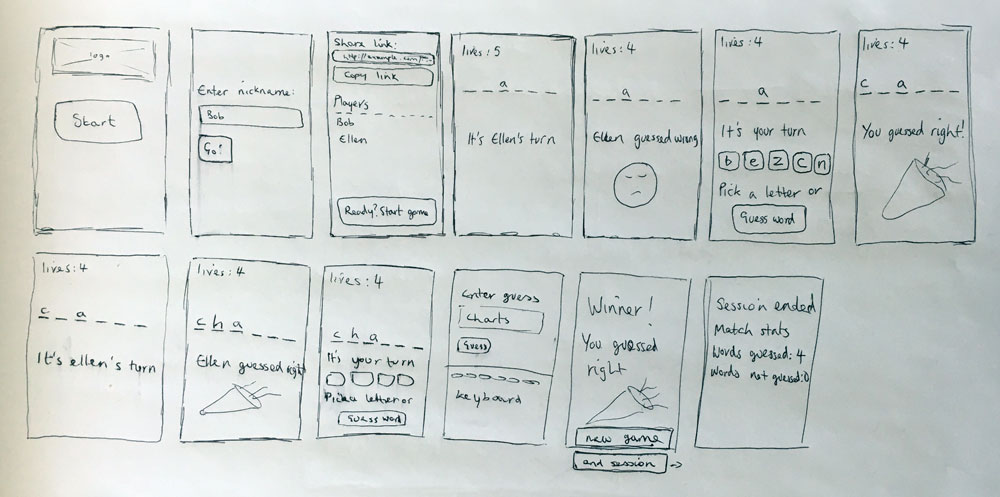 logo
Start
Enter nickname:
Bob
Go!
Share link:
http://example.com/
Copy link
Players
Bob
Ellen
Ready? Start game
lives: 5
a
It's Ellen's turn
lives: 4
a
Ellen guessed wrong
lives: 4
a
It's your turn
b e z c n
Pick a letter or
Guess word
lives: 4
c a
You guessed right!
lives: 4
c a
It's ellen's turn
lives: 4
c h a
Ellen guessed right
lives: 4
c h a
It's your turn
Pick a letter or
Guess word
Enter guess
Charts
Guess
keyboard
Winner!
You guessed
right
new game
end session
Session ended
Match stats
Words guessed: 4
Words not guessed: 0